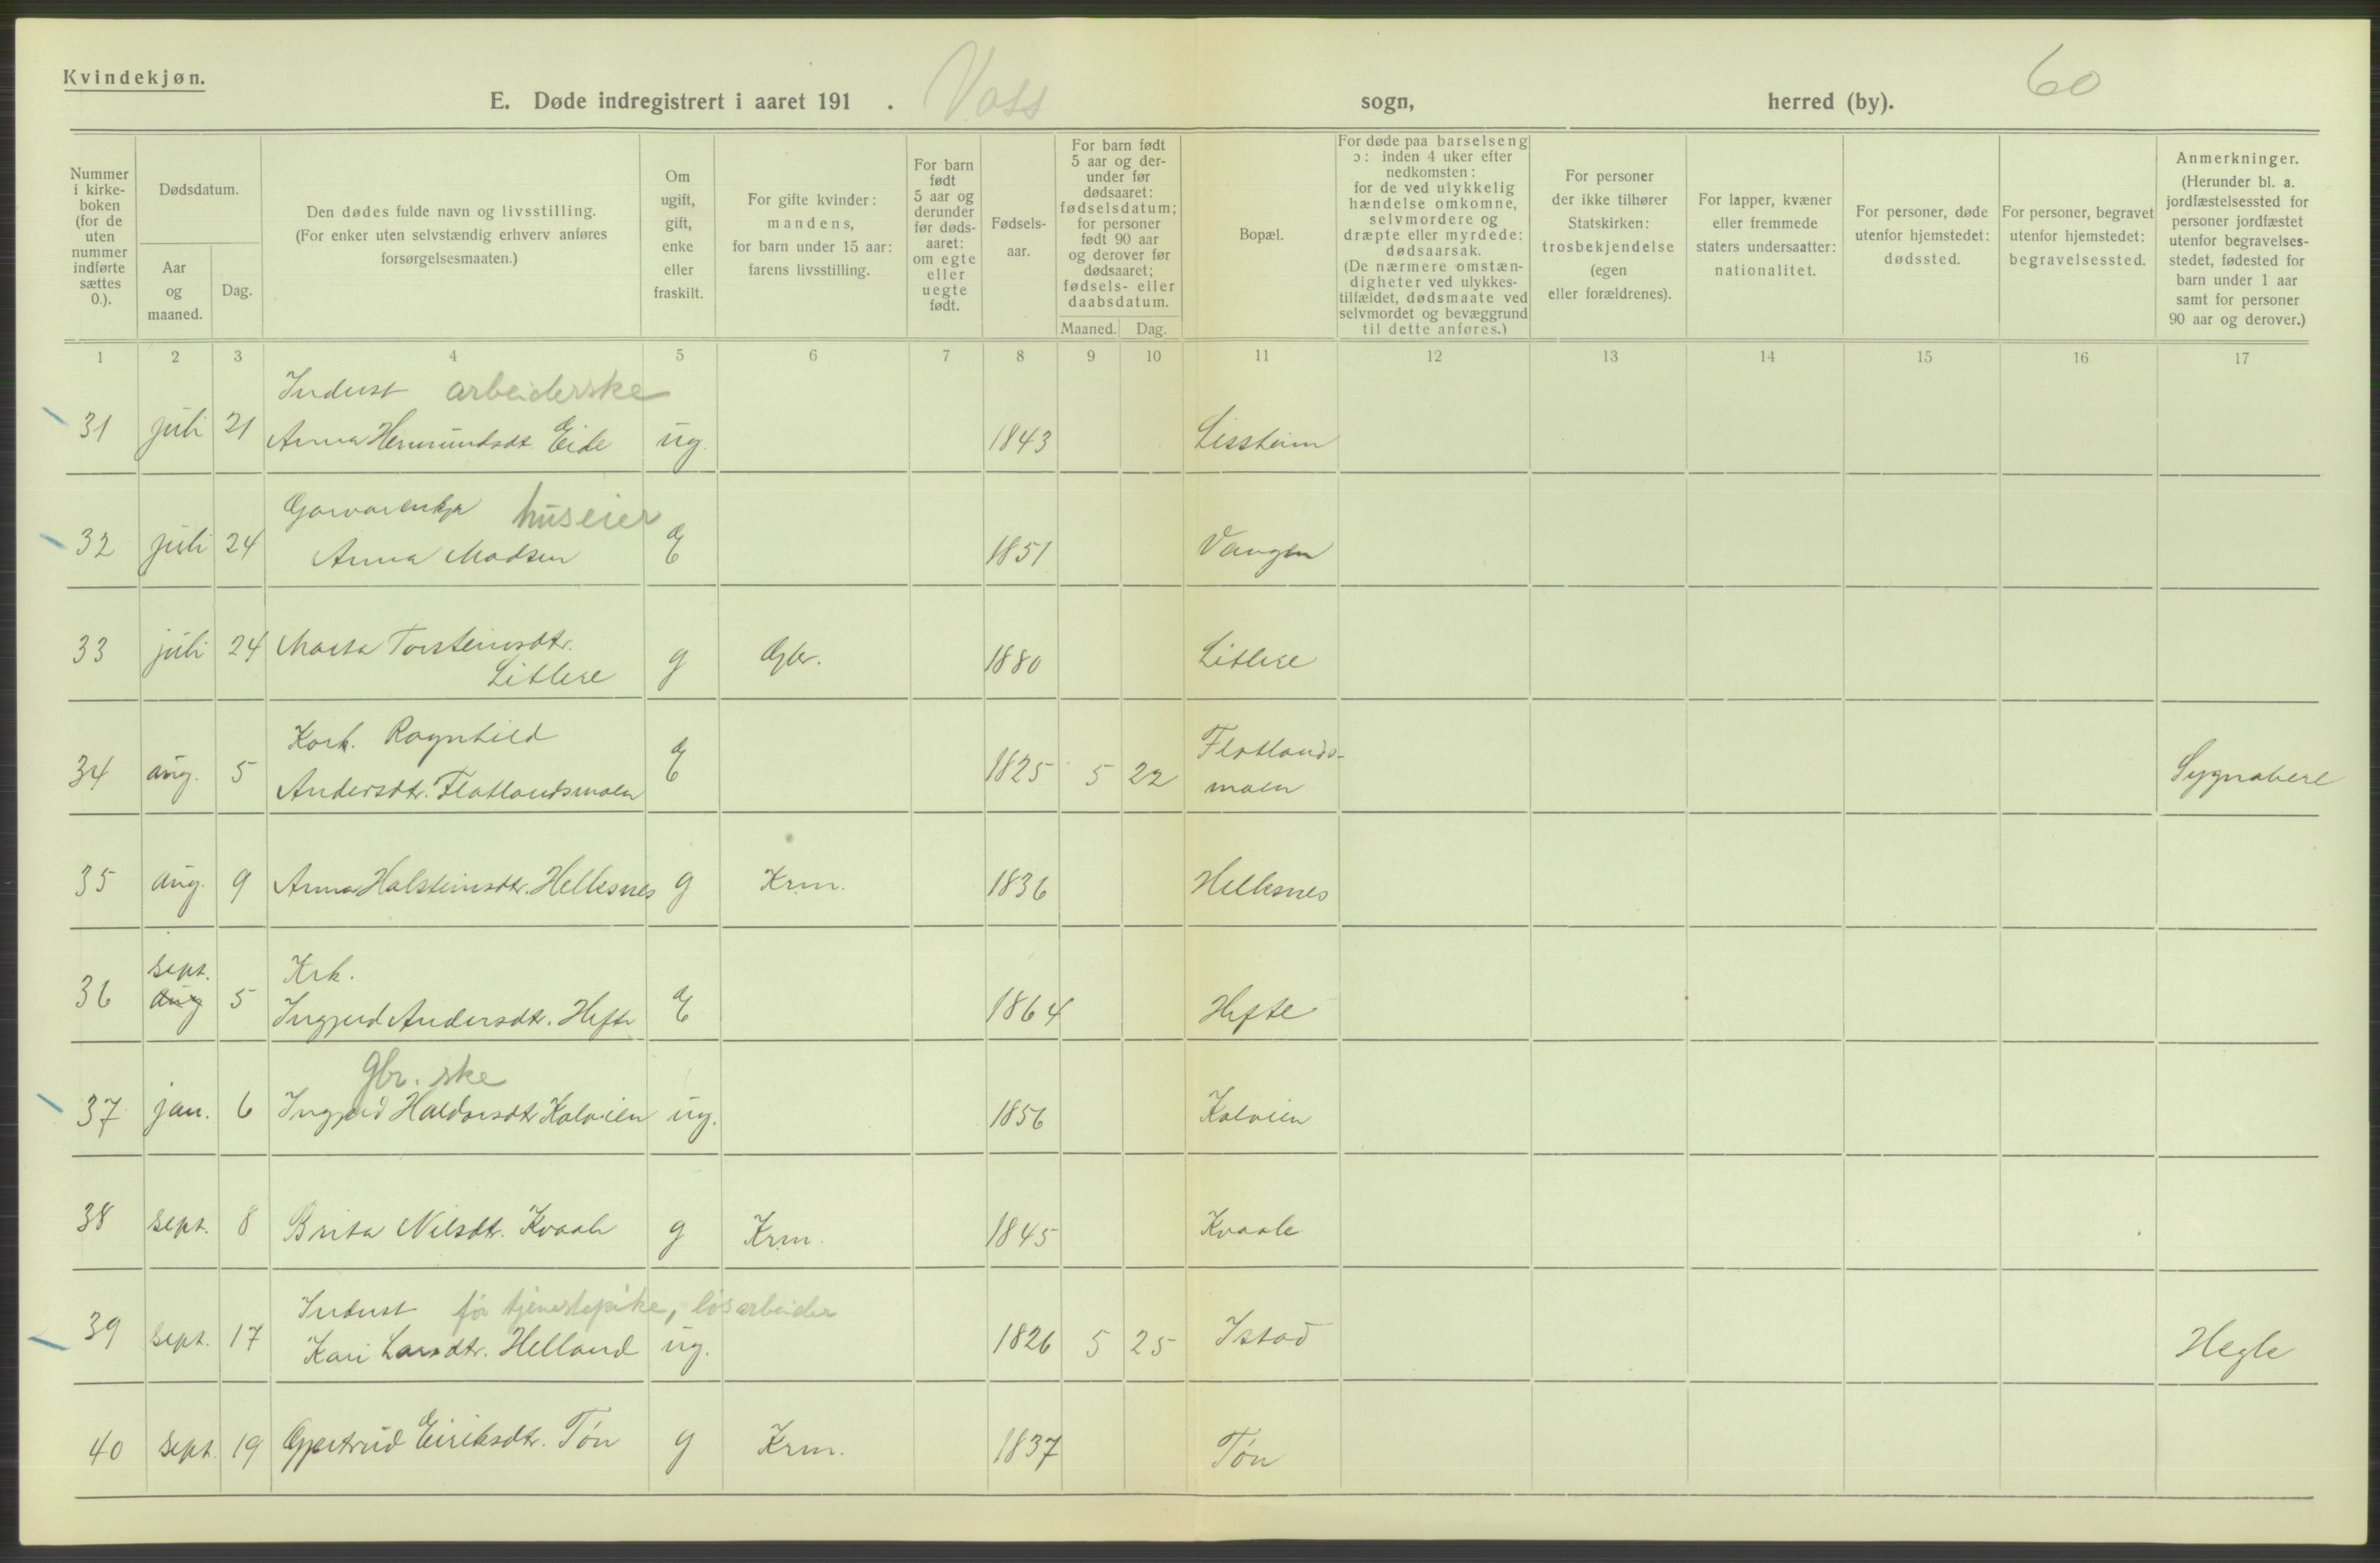 Kvindekjøn.
60
E. Døde indregistrert i aaret 191 . Voss sogn, herred (by).
Nummer
i kirke-
boken
(for de
uten
nummer
indførte
sættes
0.).
Dødsdatum.
Aar
og
maaned.
Dag.
Den dødes fulde navn og livsstilling.
(For enker uten selvstændig erhverv anføres
forsørgelsesmaaten.)
Om
ugift,
gift,
enke
eller
fraskilt.
For gifte kvinder:
mandens,
for barn under 15 aar:
farens livsstilling.
For barn
født
5 aar og
derunder
før døds-
aaret:
om egte
eller
uegte
født.
Fødsels-
aar.
For barn født
5 aar og der-
under før
dødsaaret:
fødselsdatum;
for personer
født 90 aar
og derover før
dødsaaret;
fødsels- eller
daabsdatum.
Maaned. Dag.
Bopæl.
For døde paa barselseng
ɔ: inden 4 uker efter
nedkomsten:
for de ved ulykkelig
hændelse omkomne,
selvmordere og
dræpte eller myrdede:
dødsaarsak.
(De nærmere omstæn-
digheter ved ulykkes-
tilfældet, dødsmaate ved
selvmordet og bevæggrund
til dette anføres.)
For personer
der ikke tilhører
Statskirken:
trosbekjendelse
(egen
eller forældrenes).
For lapper, kvæner
eller fremmede
staters undersaatter:
nationalitet.
For personer, døde
utenfor hjemstedet:
dødssted.
For personer, begravet
utenfor hjemstedet:
begravelsessted.
Anmerkninger.
(Herunder bl. a.
jordfæstelsessted for
personer jordfæstet
utenfor begravelses-
stedet, fødested for
barn under 1 aar
samt for personer
90 aar og derover.)
1 2 3 4 5 6 7 8 9 10 11 12 13 14 15 16 17
Indust arbeiderske
31 juli 21 Anna Hermundsdt. Eide ug. 1843 Lissheim
Garvarenkja huseier
32 juli 24 Anna Madsen E 1851 Vangen
33 juli 24 Marta Torsteinsdtr. g Gbr. 1880 Litlere
Litlere
Kark. Ragnhild Flatlands-
34 aug. 5 Andersdtr. Flatlandsmoen E 1825 5 22 moen Sygnabere
35 aug. 9 Anna Halsteinsdtr. Hellesnes g Krm. 1836 Hellesnes
sept. Krk.
36 aug 5 Ingjerd Andersdtr. Hefte E 1864 Hefte
Gbr.ske
37 jan. 6 Ingjerd Haldorsdtr Kalvien ug. 1856 Kalvien
38 sept. 8 Brita Nilsdtr. Kvaale g Krm. 1845 Kvaale
Indust før tjenestepike, løsarbeider
39 sept. 17 Kari Larsdtr. Helland ug. 1826 5 25 Istad Hegle
40 sept. 19 Gjertrud Eiriksdtr. Tøn g Krm. 1837 Tøn